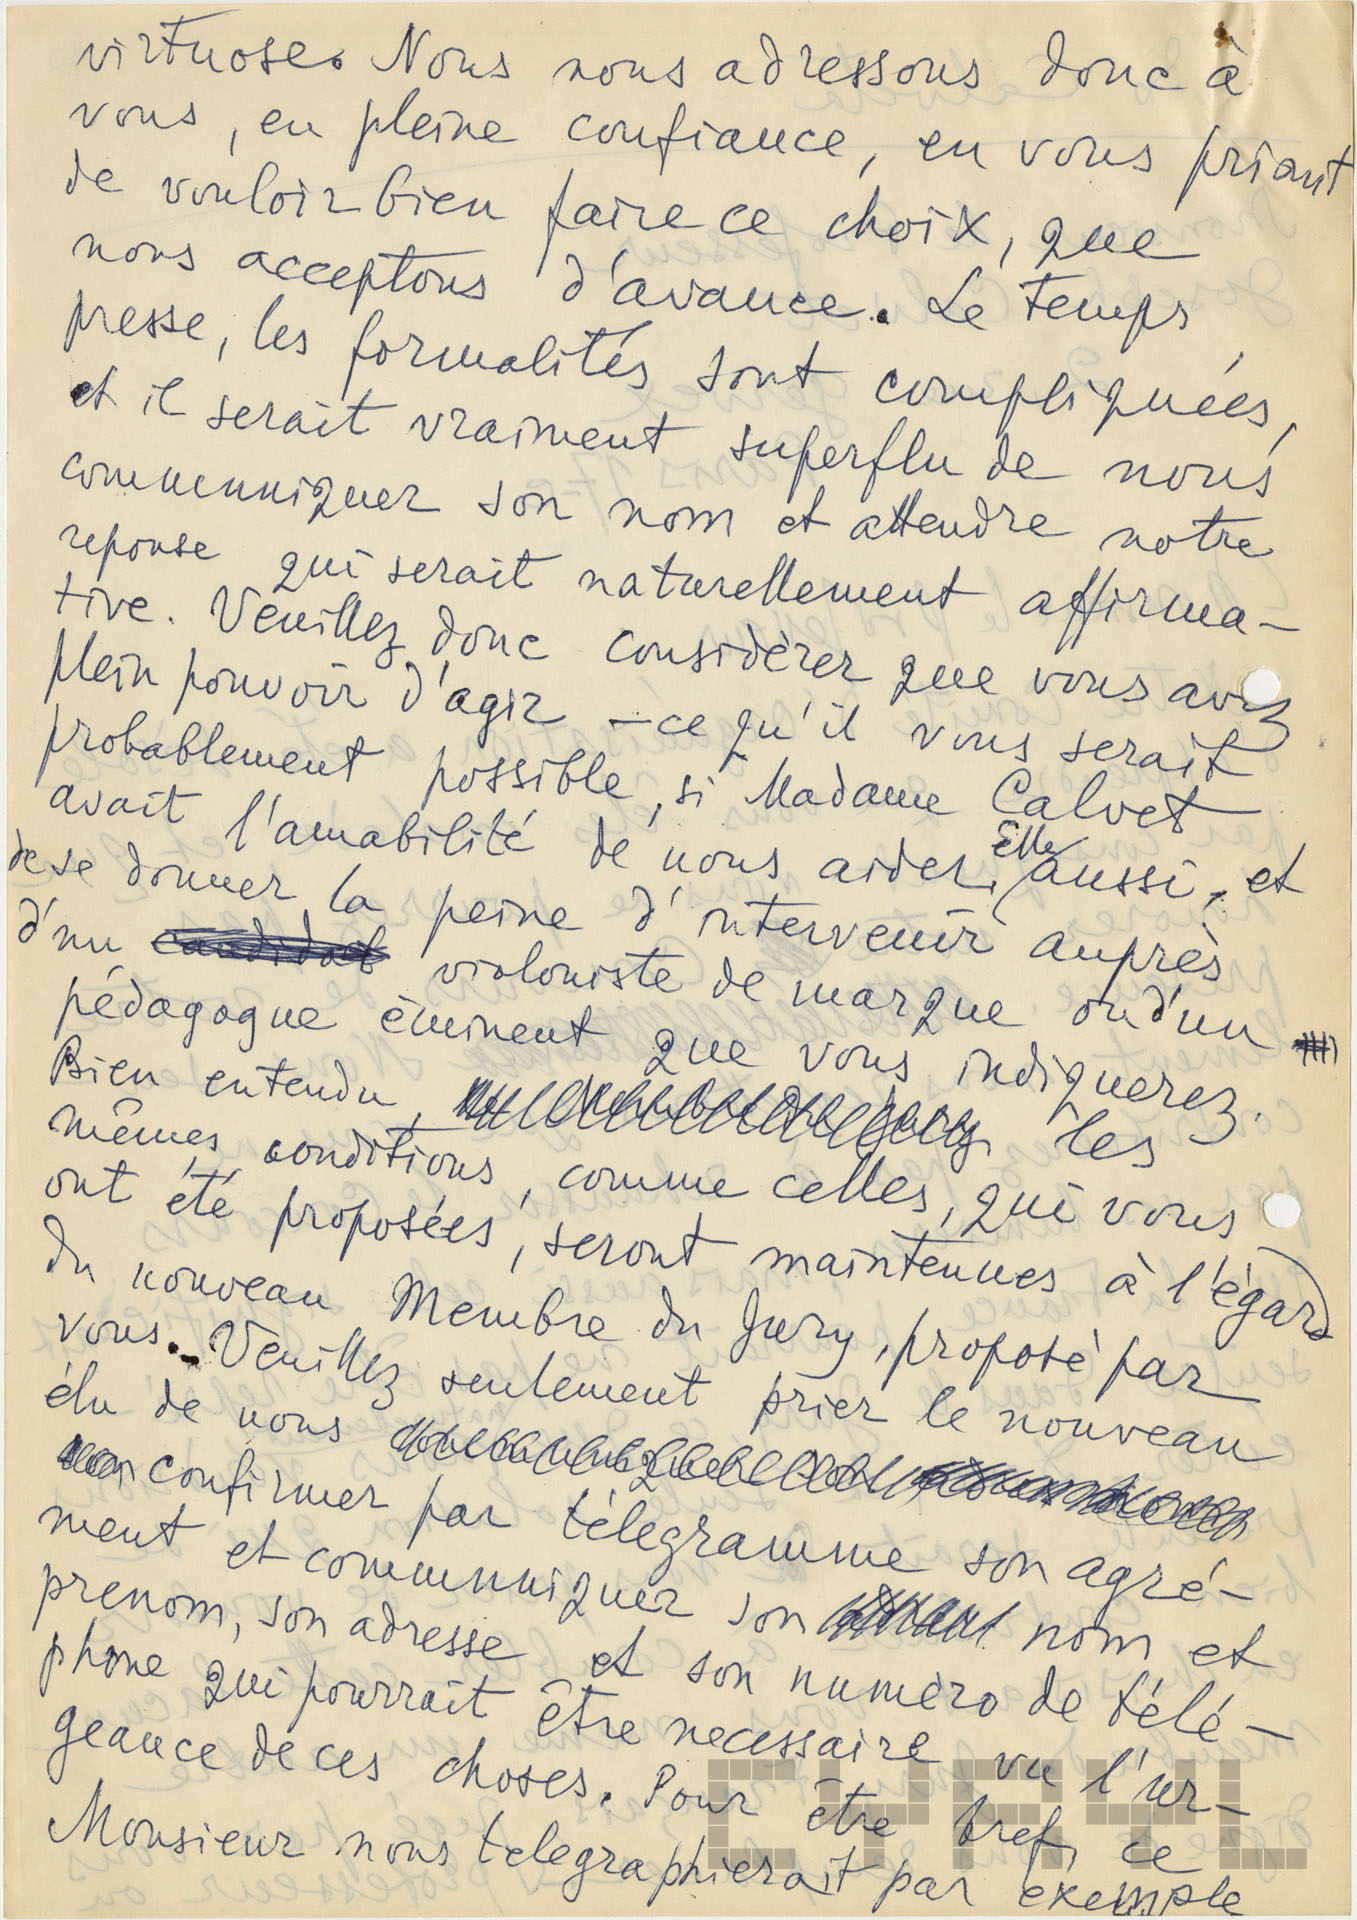 virtuose. Nous nous adressons donc à
vous, en pleine confiance, en vous priant
de vouloir bien faire ce choix, que
nous acceptons d'avance. Le temps
presse, les formalités sont compliquées,
et il serait vraiment superflu de nous
communniquer son nom et attendre notre
reponse qui serait naturellement affirma-
tive. Veuillez donc considérer que vous avez
plein pouvoir d'agir - ce qu'il vous serait
probablement possible, si Madame Calvet
avait l'amabilité de nous aider, Elle aussi, et
de se donner la peine d'intervenir auprès
d'un candidat violoniste de marque ou d'un
pédagogue éminent que vous indiquerez.
Bien entendu, les
mêmes conditions, comme celles, qui vous
ont été proposées, seront maintenues à l'égard
du nouveau Membre du Jury, proposé par
vous. Veuillez seulement prier le nouveau
élu de nous
confirmer par télegramme son agré-
ment et communniquer son nom et
prenom, son adresse et son numéro de télé-
phone qui pourrait être necessaire vu l'ur-
geance de ces choses. Pour être bref, ce
Monsieur nous telegraphierait par exemple